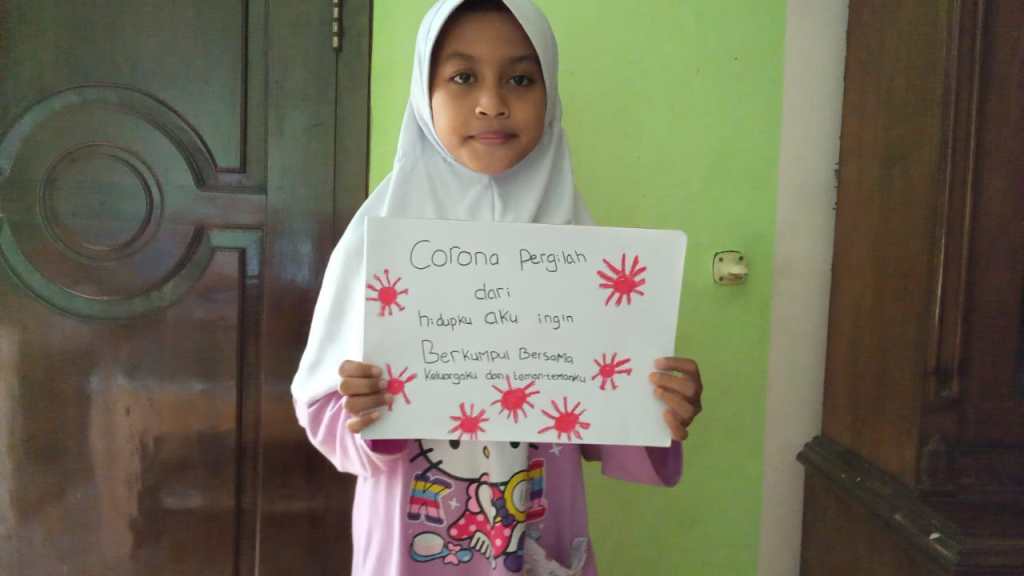 Corona Pergilah
dari
hidupku aku ingin
Berkumpul Bersama
Keluargaku dan teman-temanku